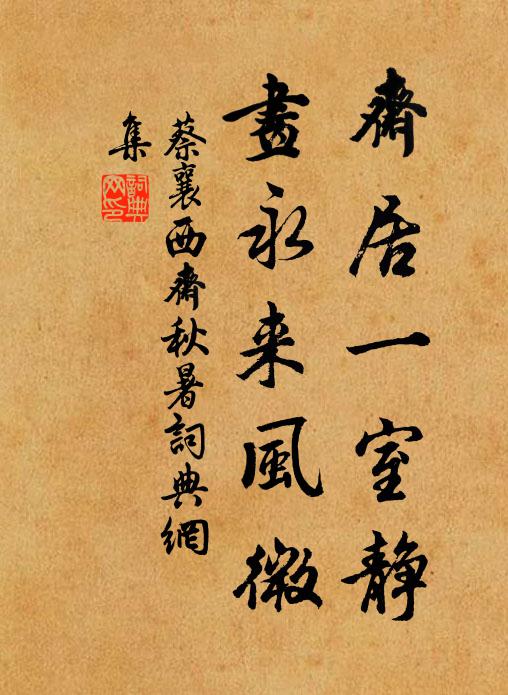 齋居一室静
晝永来風微
蔡襄西齋秋暑詞典網
集
詞典
网印